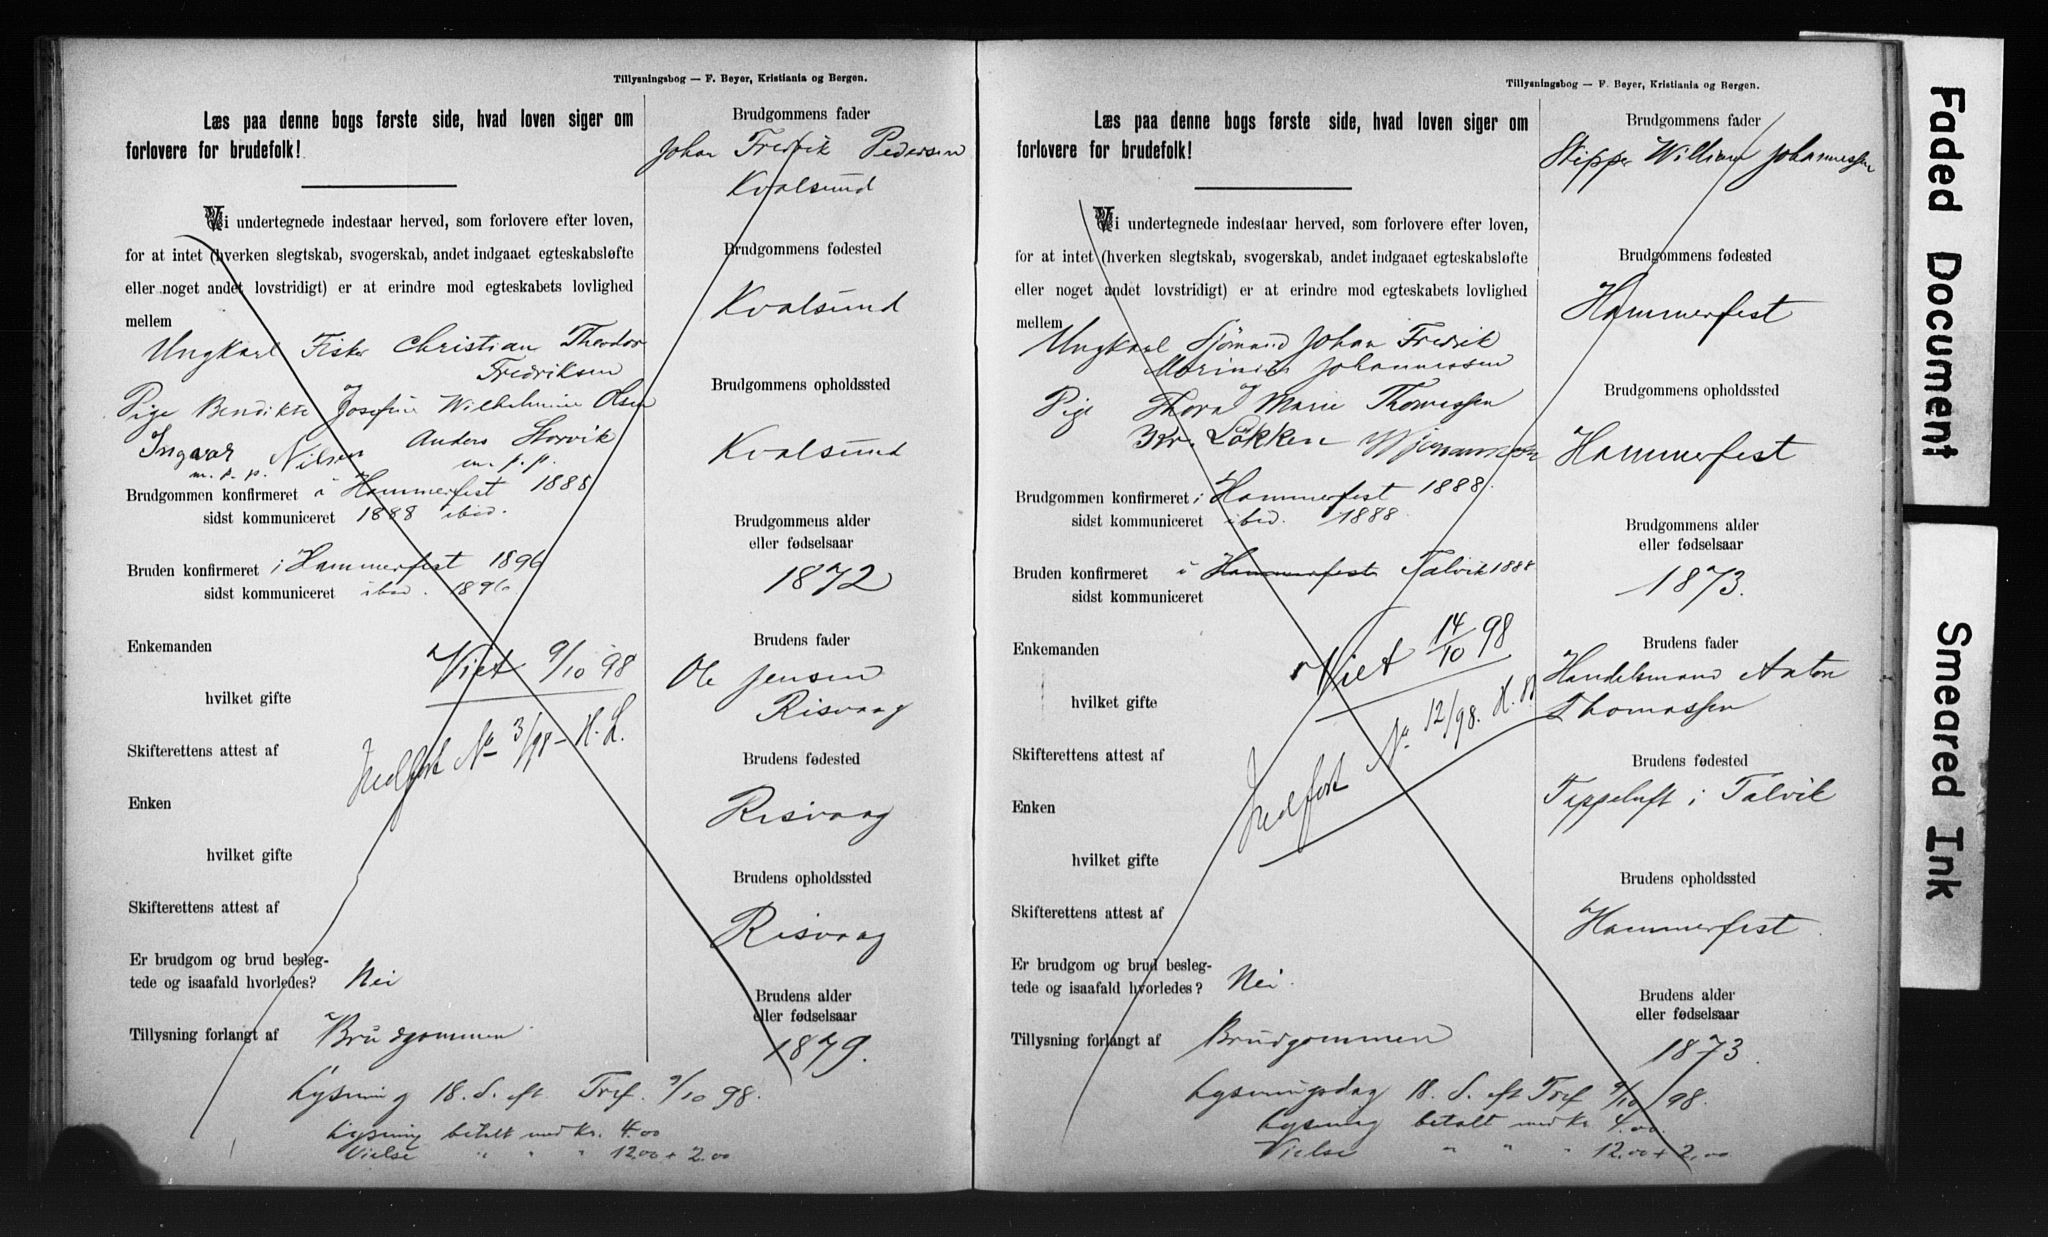 Tillysningsbog — F. Beyer, Kristiania og Bergen.
Læs paa denne bogs første side, hvad loven siger om
forlovere for brudefolk!
Vi undertegnede indestaar herved, som forlovere efter loven,
for at intet (hverken slegtskab, svogerskab, andet indgaaet egteskabsløfte
eller noget andet lovstridigt) er at erindre mod egteskabets lovlighed
mellem
Ungkarl Fisker Christian Theodor
Fredriksen
Pige Bendikte Josefine Wilhelmine Olsen
Ingvar Nilsen Anders Storvik
m. p. p. m. p. p.
Brudgommen konfirmeret i Hammerfest 1888
sidst kommuniceret 1888 ibid.
Bruden konfirmeret i Hammerfest 1896
sidst kommuniceret ibid. 1896
Enkemanden
Viet 9/10 98
hvilket gifte
Indført No 3/98 - H. L.
Skifterettens attest af
Enken
hvilket gifte
Skifterettens attest af
Er brudgom og brud besleg-
tede og isaafald hvorledes? Nei
Tillysning forlangt af Brudgommen
Lysning 18. S. eft. Tref. 9/10 98.
Lysning betalt med Kr. 4.00
Vielse " " " 12.00 + 2.00
Brudgommens fader
Johan Fredrik Pedersen
Kvalsund
Brudgommens fødested
Kvalsund
Brudgommens opholdssted
Kvalsund
Brudgommens alder
eller fødselsaar
1872
Brudens fader
Ole Jensen
Risvaag
Brudens fødested
Risvaag
Brudens opholdssted
Risvaag
Brudens alder
eller fødselsaar
1879.
Tillysningsbog — F. Beyer, Kristiania og Bergen.
Læs paa denne bogs første side, hvad loven siger om
forlovere for brudefolk!
Vi undertegnede indestaar herved, som forlovere efter loven,
for at intet (hverken slegtskab, svogerskab, andet indgaaet egteskabsløfte
eller noget andet lovstridigt) er at erindre mod egteskabets lovlighed
mellem
Ungkarl Sjømand Johan Fredrik
Marinius Johannessen
Pige Thora Marie Thomassen
Kr. Løkken
Brudgommen konfirmeret i Hammerfest 1888.
sidst kommuniceret ibid. 1888.
Bruden konfirmeret i Hammerfest Talvik 1888
sidst kommuniceret
Enkemanden
Viet 14/10 98
hvilket gifte
Indført No 12/98.
Skifterettens attest af
Enken
hvilket gifte
Skifterettens attest af
Er brudgom og brud besleg-
tede og isaafald hvorledes? Nei.
Tillysning forlangt af Brudgommen
Lysningsdag 18. S. eft Tref 9/10 98.
Lysning betalt med Kr 4.00.
Vielse " " " 12.00 + 2.00
Brudgommens fader
Skipper William Johannessen
Brudgommens fødested
Hammerfest
Brudgommens opholdssted
Hammerfest
Brudgommens alder
eller fødselsaar
1873.
Brudens fader
Handelsmand Anton
Thomassen
Brudens fødested
i Talvik
Brudens opholdssted
Hammerfest.
Brudens alder
eller fødselsaar
1873.
Faded Document
Smeared Ink